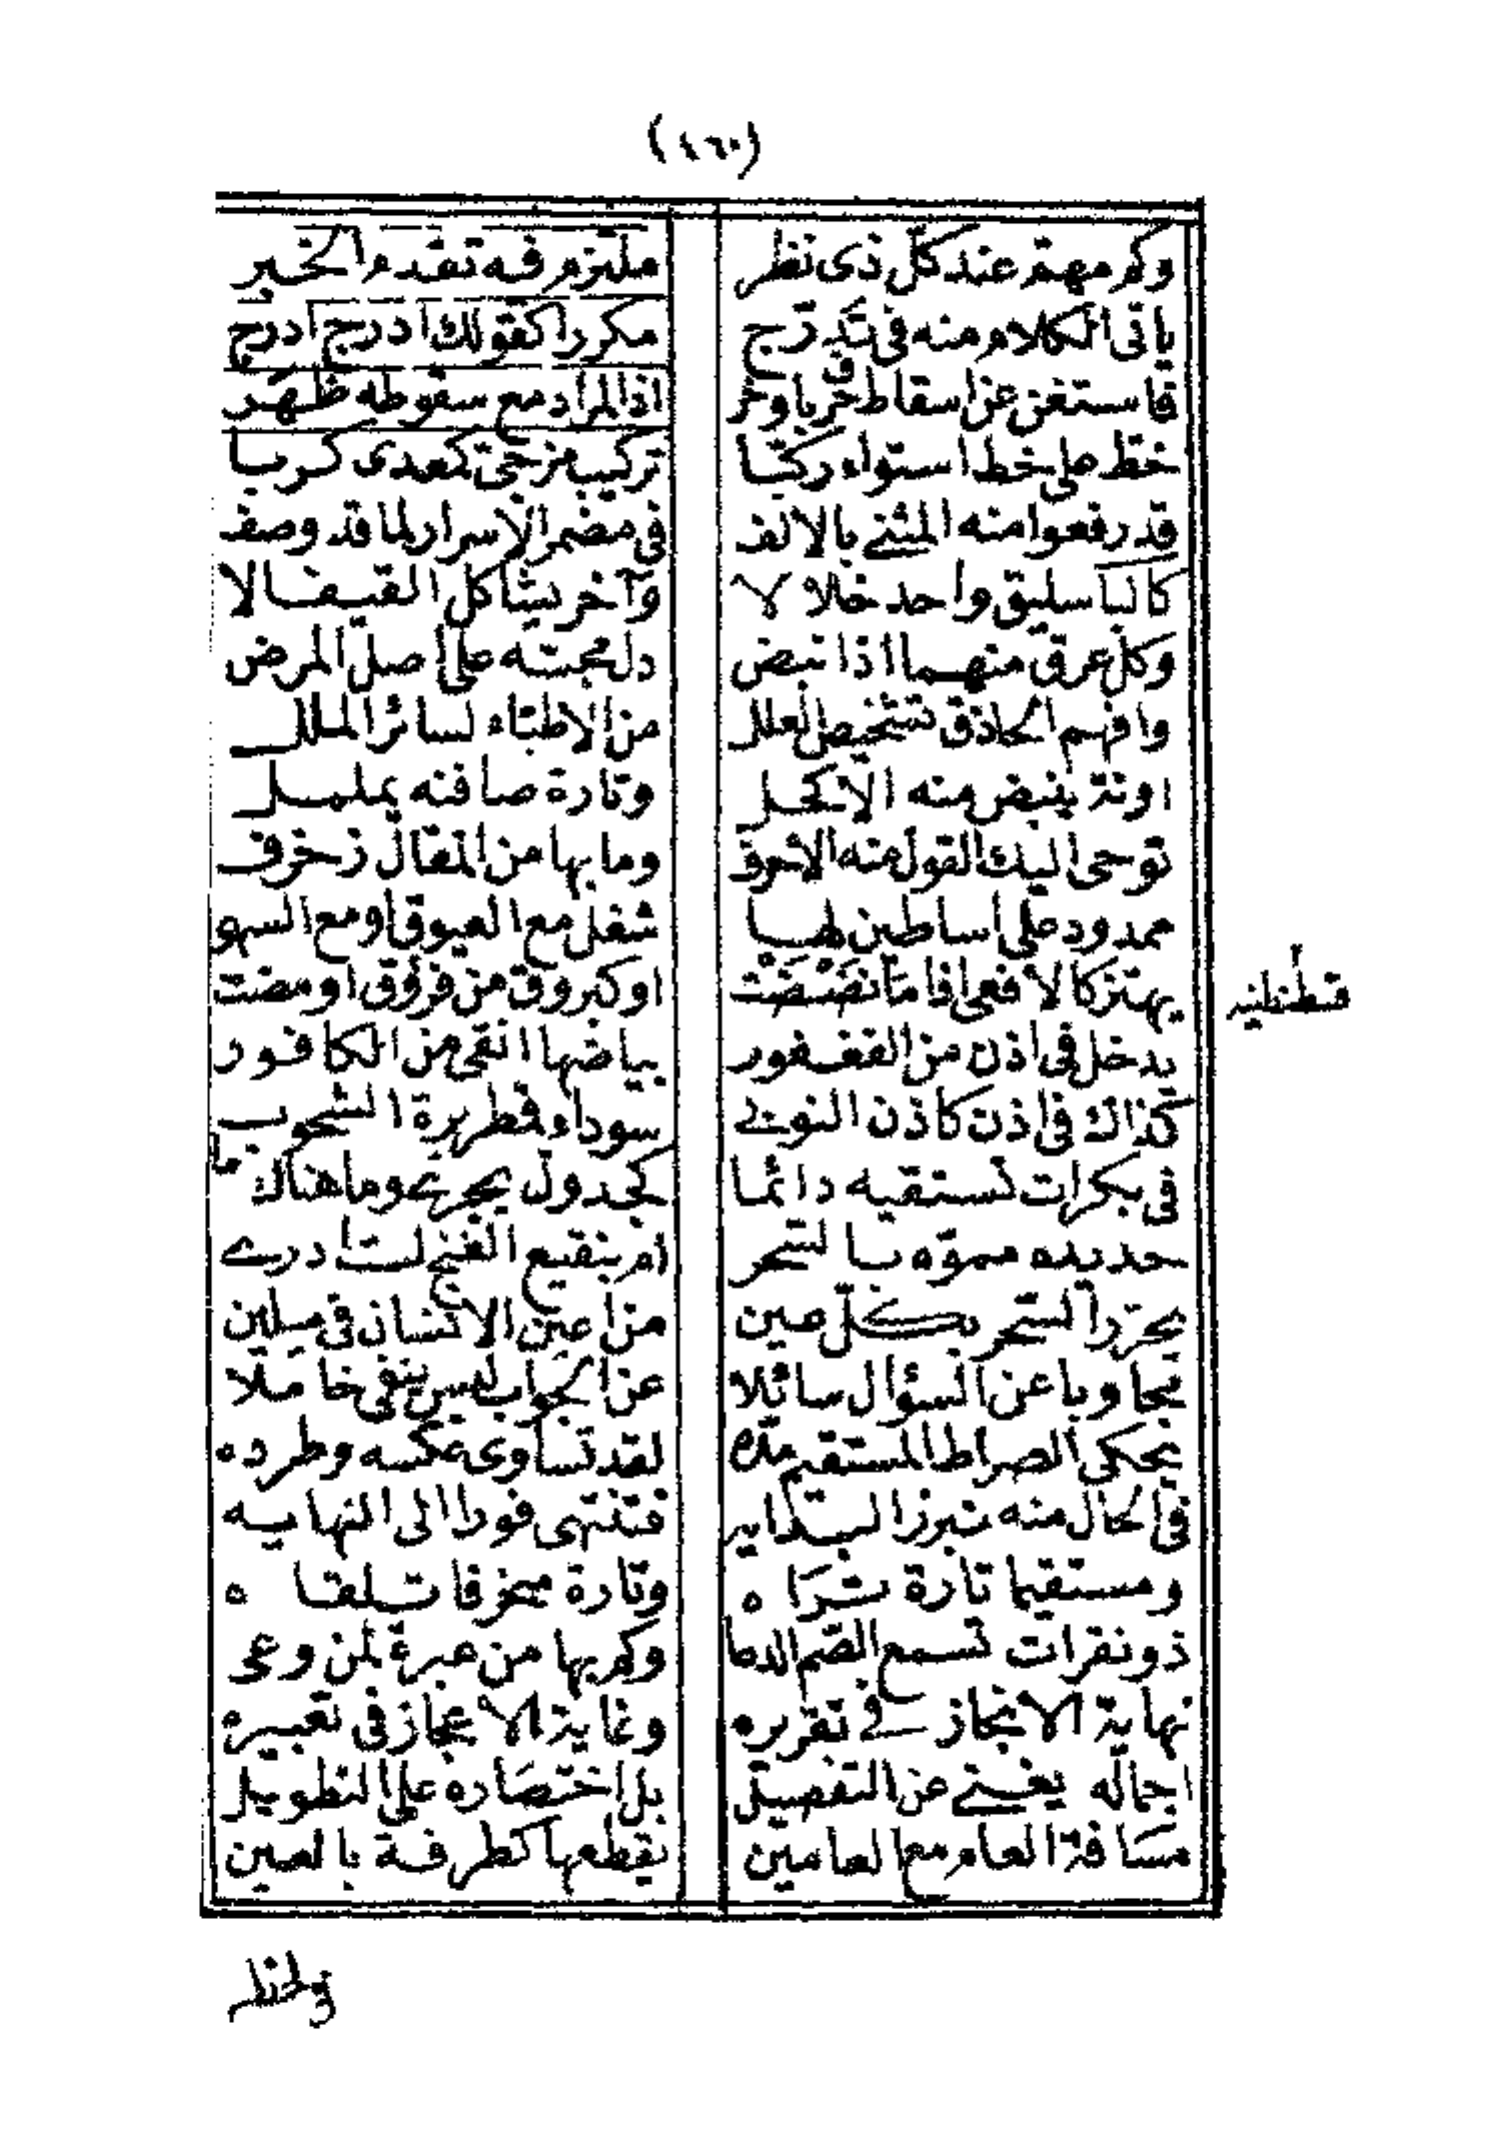 (١٦٠)
وكم مهمّ عند كلّ ذى نظر ملتزم فيه تقدم الخبر
ياتى الكلام منه فى تدرّج مكررا كقولك ادرج ادرج
فاستغن عن اسقاط حرف او خر اذ المراد مع سقوطه ظهر
خطّ على خط استواء ركبّا تركيب مزجىّ كمعدى كربا
قد رفعوا منه المثنى بالالف فى مضمر الاسرار لما قد وصف
كالباسليق واحد خلا لا وآخر يشاكل القيفالا
وكل عرق منهما اذا نبض دل مجسّه على اصل المرض
وافهم الحاذق تشخيص العلل من الاطبّاء لسائر الملل
اونة ينبض منه الاكحل وتارة صافنه يململ
توحى اليك القول منه الاحرف وما بها من المقال زخرف
ممدود على اساطين لها شغل مع العيوق او مع السها
يهتز كالافعى اذا ما نضنضت او كبروق من فروق اومضت
قسطنطينيه
يدخل فى اذن من الفغفور بياضها انقى من الكافور
كذاك فى اذن كاذن النوبى سوداء قطريرة الشحوب
فى بكرات تستقيه دائما كجدول يجرى وما هناك ما
حديده مموّه بالسّحر ام بنقيع الغنج لست ادرى
يحرّر السّحر بكلّ عين من اعين الانسان فى ميلين
مجاوبا عن السؤال سائلا عن الجواب ليس ينفى خاملا
يحكى الصراط المستقيم مدّه لقد تساوى عكسه وطرده
فى الحال منه تبرز البدايه فتنتهى فورا الى النهايه
ومستقيما تارة تراه وتارة منحرفا تلقاه
ذو نقرات تسمع الصّم الدعا وكم بها من عبرة لمن وعى
نهاية الانجاز فى تقريره وغاية الاعجاز فى تعبيره
اجماله يغنى عن التفصيل بل اختصاره على التطويل
مسافة العام مع العامين نقطعها كطرفة بالعين